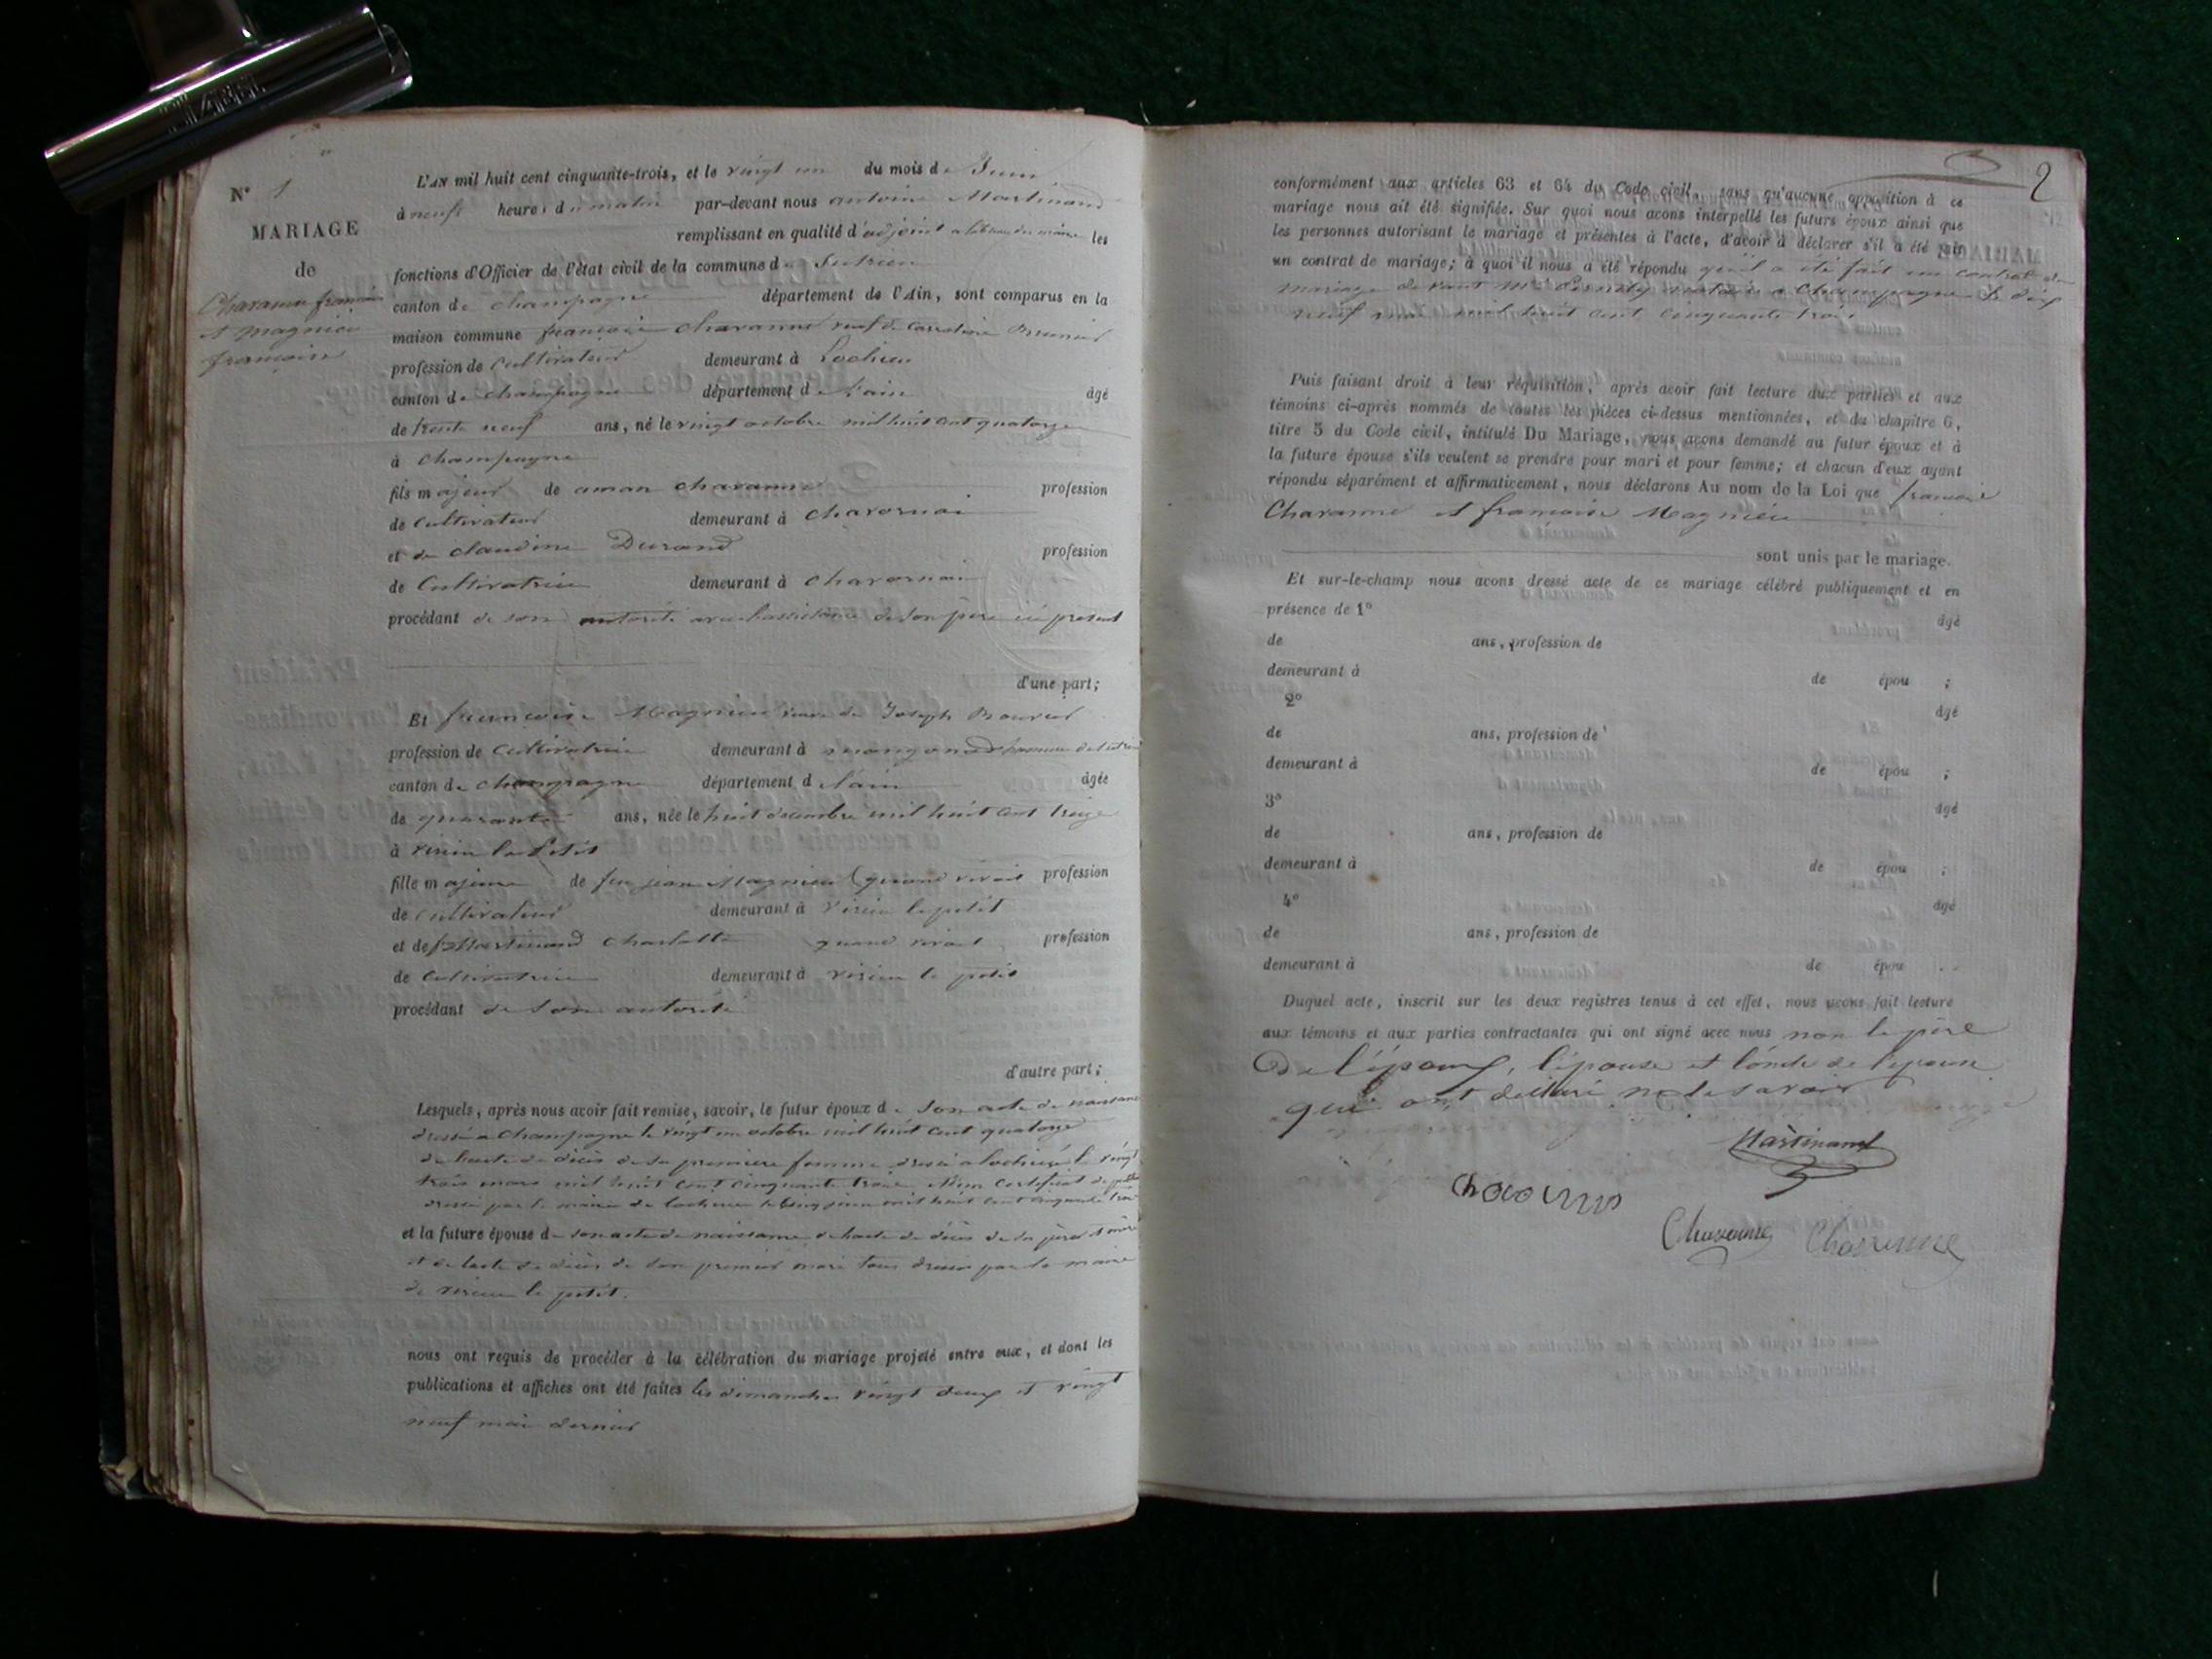 N° 1
MARIAGE
de
Chavanne françois
et Magnieu
françoise
L'AN mil huit cent cinquante-trois, et le vingt un du mois de Juin
à neuf heures du matin par-devant nous antoine Martinand
remplissant en qualité d'adjoint les
fonctions d'Officier de l'état civil de la commune de Sutrieu
canton de champagne département de l'Ain, sont comparus en la
maison commune françois chavanne veuf de Brunier
profession de Cultivateur demeurant à Lochieu
canton de champagne département de l'ain âgé
de trente neuf ans, né le vingt octobre mil huit cent quatorze
à champagne
fils majeur de aman chavanne profession
de Cultivateur demeurant à chavornai
et de claudine Durand profession
de Cultivatrice demeurant à chavornai
procédant de son autorité avec l'assistance de son père ici présent
d'une part;
Et françoise Magnieu veuve de Joseph
profession de Cultivatrice demeurant à
canton de champagne département de l'ain âgée
de quarante ans, née le huit décembre mil huit cent treize
à virieu le Petit
fille majeure de feu jean Magnieu quand vivait profession
de Cultivateur demeurant à virieu le petit
et de Martinand Charlotte quand vivait profession
de Cultivatrice demeurant à virieu le petit
procédant de son autorité
d'autre part;
Lesquels, après nous avoir fait remise, savoir, le futur époux de son acte de naissance
dressé a Champagne le vingt un octobre mil huit cent quatorze
de l'acte de décès de sa première femme dressé a lochieu le vingt
trois mars mil huit cent cinquante trois certificat de
dressé par le maire de lochieu le cinq juin mil huit cent cinquante trois
et la future épouse de son acte de naissance de l'acte de décès de sa père et mère
et de l'acte de décès de son premier mari tous dressés par le maire
de virieu le petit.
nous ont requis de procéder à la célébration du mariage projeté entre eux, et dont les
publications et affiches ont été faites les dimanches vingt deux et vingt
neuf mai dernier
2
conformément aux articles 63 et 64 du Code civil, sans qu'aucune opposition à ce
mariage nous ait été signifiée. Sur quoi nous avons interpellé les futurs époux ainsi que
les personnes autorisant le mariage et présentes à l'acte, d'avoir à déclarer s'il a été fait
un contrat de mariage; à quoi il nous a été répondu qu'il a été fait un contrat de
mariage devant Me notaire a Champagne le dix
neuf mai mil huit cent cinquante trois
Puis faisant droit à leur réquisition, après avoir fait lecture aux parties et aux
témoins ci-après nommés de toutes les pièces ci-dessus mentionnées, et du chapitre 6,
titre 5 du Code civil, intitulé Du Mariage, nous avons demandé au futur époux et à
la future épouse s'ils veulent se prendre pour mari et pour femme; et chacun d'eux ayant
répondu séparément et affirmativement, nous déclarons Au nom de la Loi que françois
Chavanne et françoise Magnieu
sont unis par le mariage.
Et sur-le-champ nous avons dressé acte de ce mariage célébré publiquement et en
présence de 1° âgé
de ans, profession de
demeurant à de épou ;
2° âgé
de ans, profession de
demeurant à de épou ;
3° âgé
de ans, profession de
demeurant à de épou ;
4° âgé
de ans, profession de
demeurant à de épou .
Duquel acte, inscrit sur les deux registres tenus à cet effet, nous avons fait lecture
aux témoins et aux parties contractantes qui ont signé avec nous non le père
De l'époux, l'épouse et l'oncle de l'épouse
qui ont déclaré ne le savoir
Martinand
Chavanne Chavanne